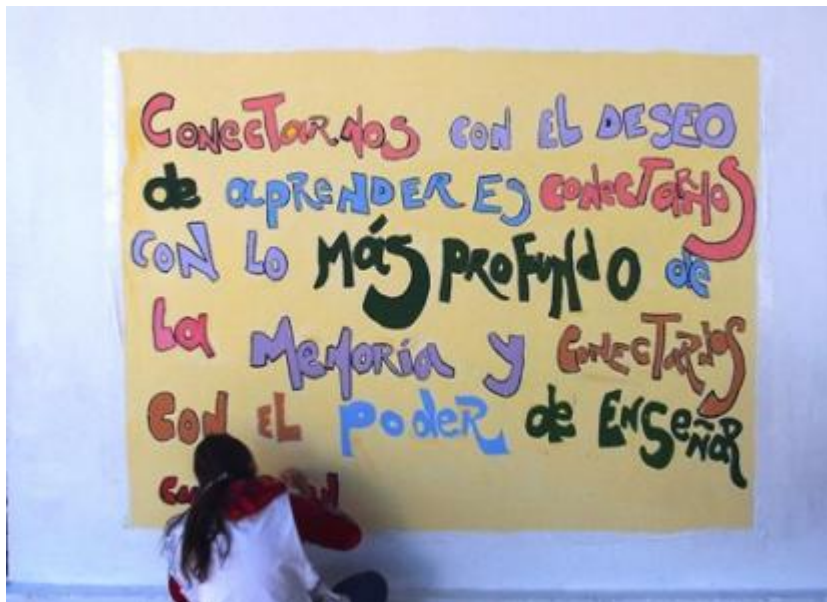 Conectarnos con el deseo
de aprender es conectarnos
con lo más profundo de
la memoria y conectarnos
con el poder de enseñar